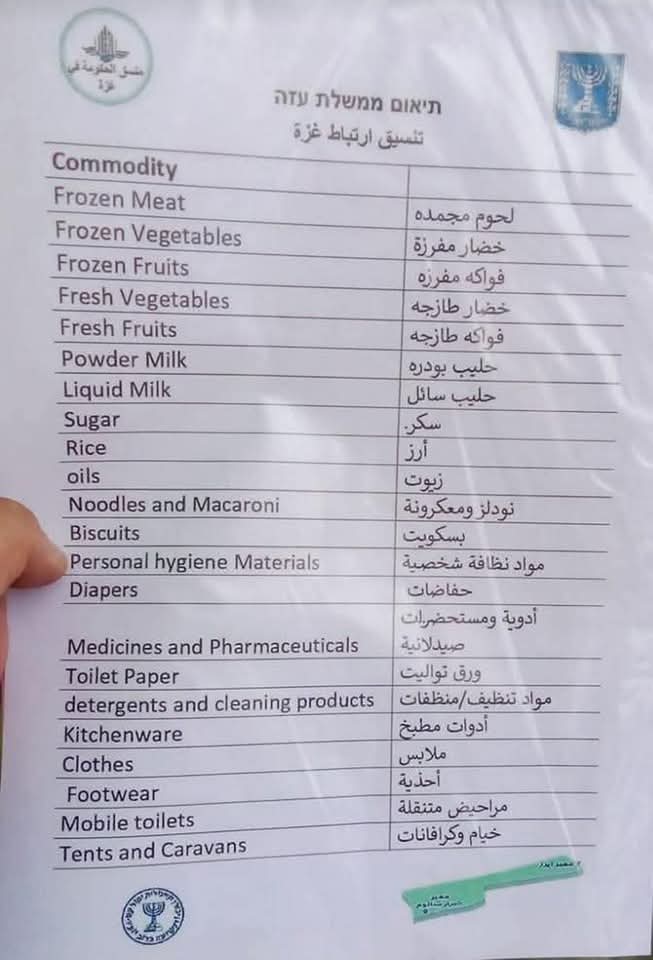 منسق الحكومة في
غزة
תיאום ממשלת עזה
تنسيق ارتباط غزة
Commodity
Frozen Meat لحوم مجمده
Frozen Vegetables خضار مفرزة
Frozen Fruits فواكه مفرزه
Fresh Vegetables خضار طازجه
Fresh Fruits فواكه طازجه
Powder Milk حليب بودره
Liquid Milk حليب سائل
Sugar سكر.
Rice أرز
oils زيوت
Noodles and Macaroni نودلز ومعكرونة
Biscuits بسكويت
Personal hygiene Materials مواد نظافة شخصية
Diapers حفاضات
أدوية ومستحضرات
Medicines and Pharmaceuticals صيدلانية
Toilet Paper ورق تواليت
detergents and cleaning products مواد تنظيف/منظفات
Kitchenware أدوات مطبخ
Clothes ملابس
Footwear أحذية
Mobile toilets مراحيض متنقلة
Tents and Caravans خيام وكرافانات
معبر